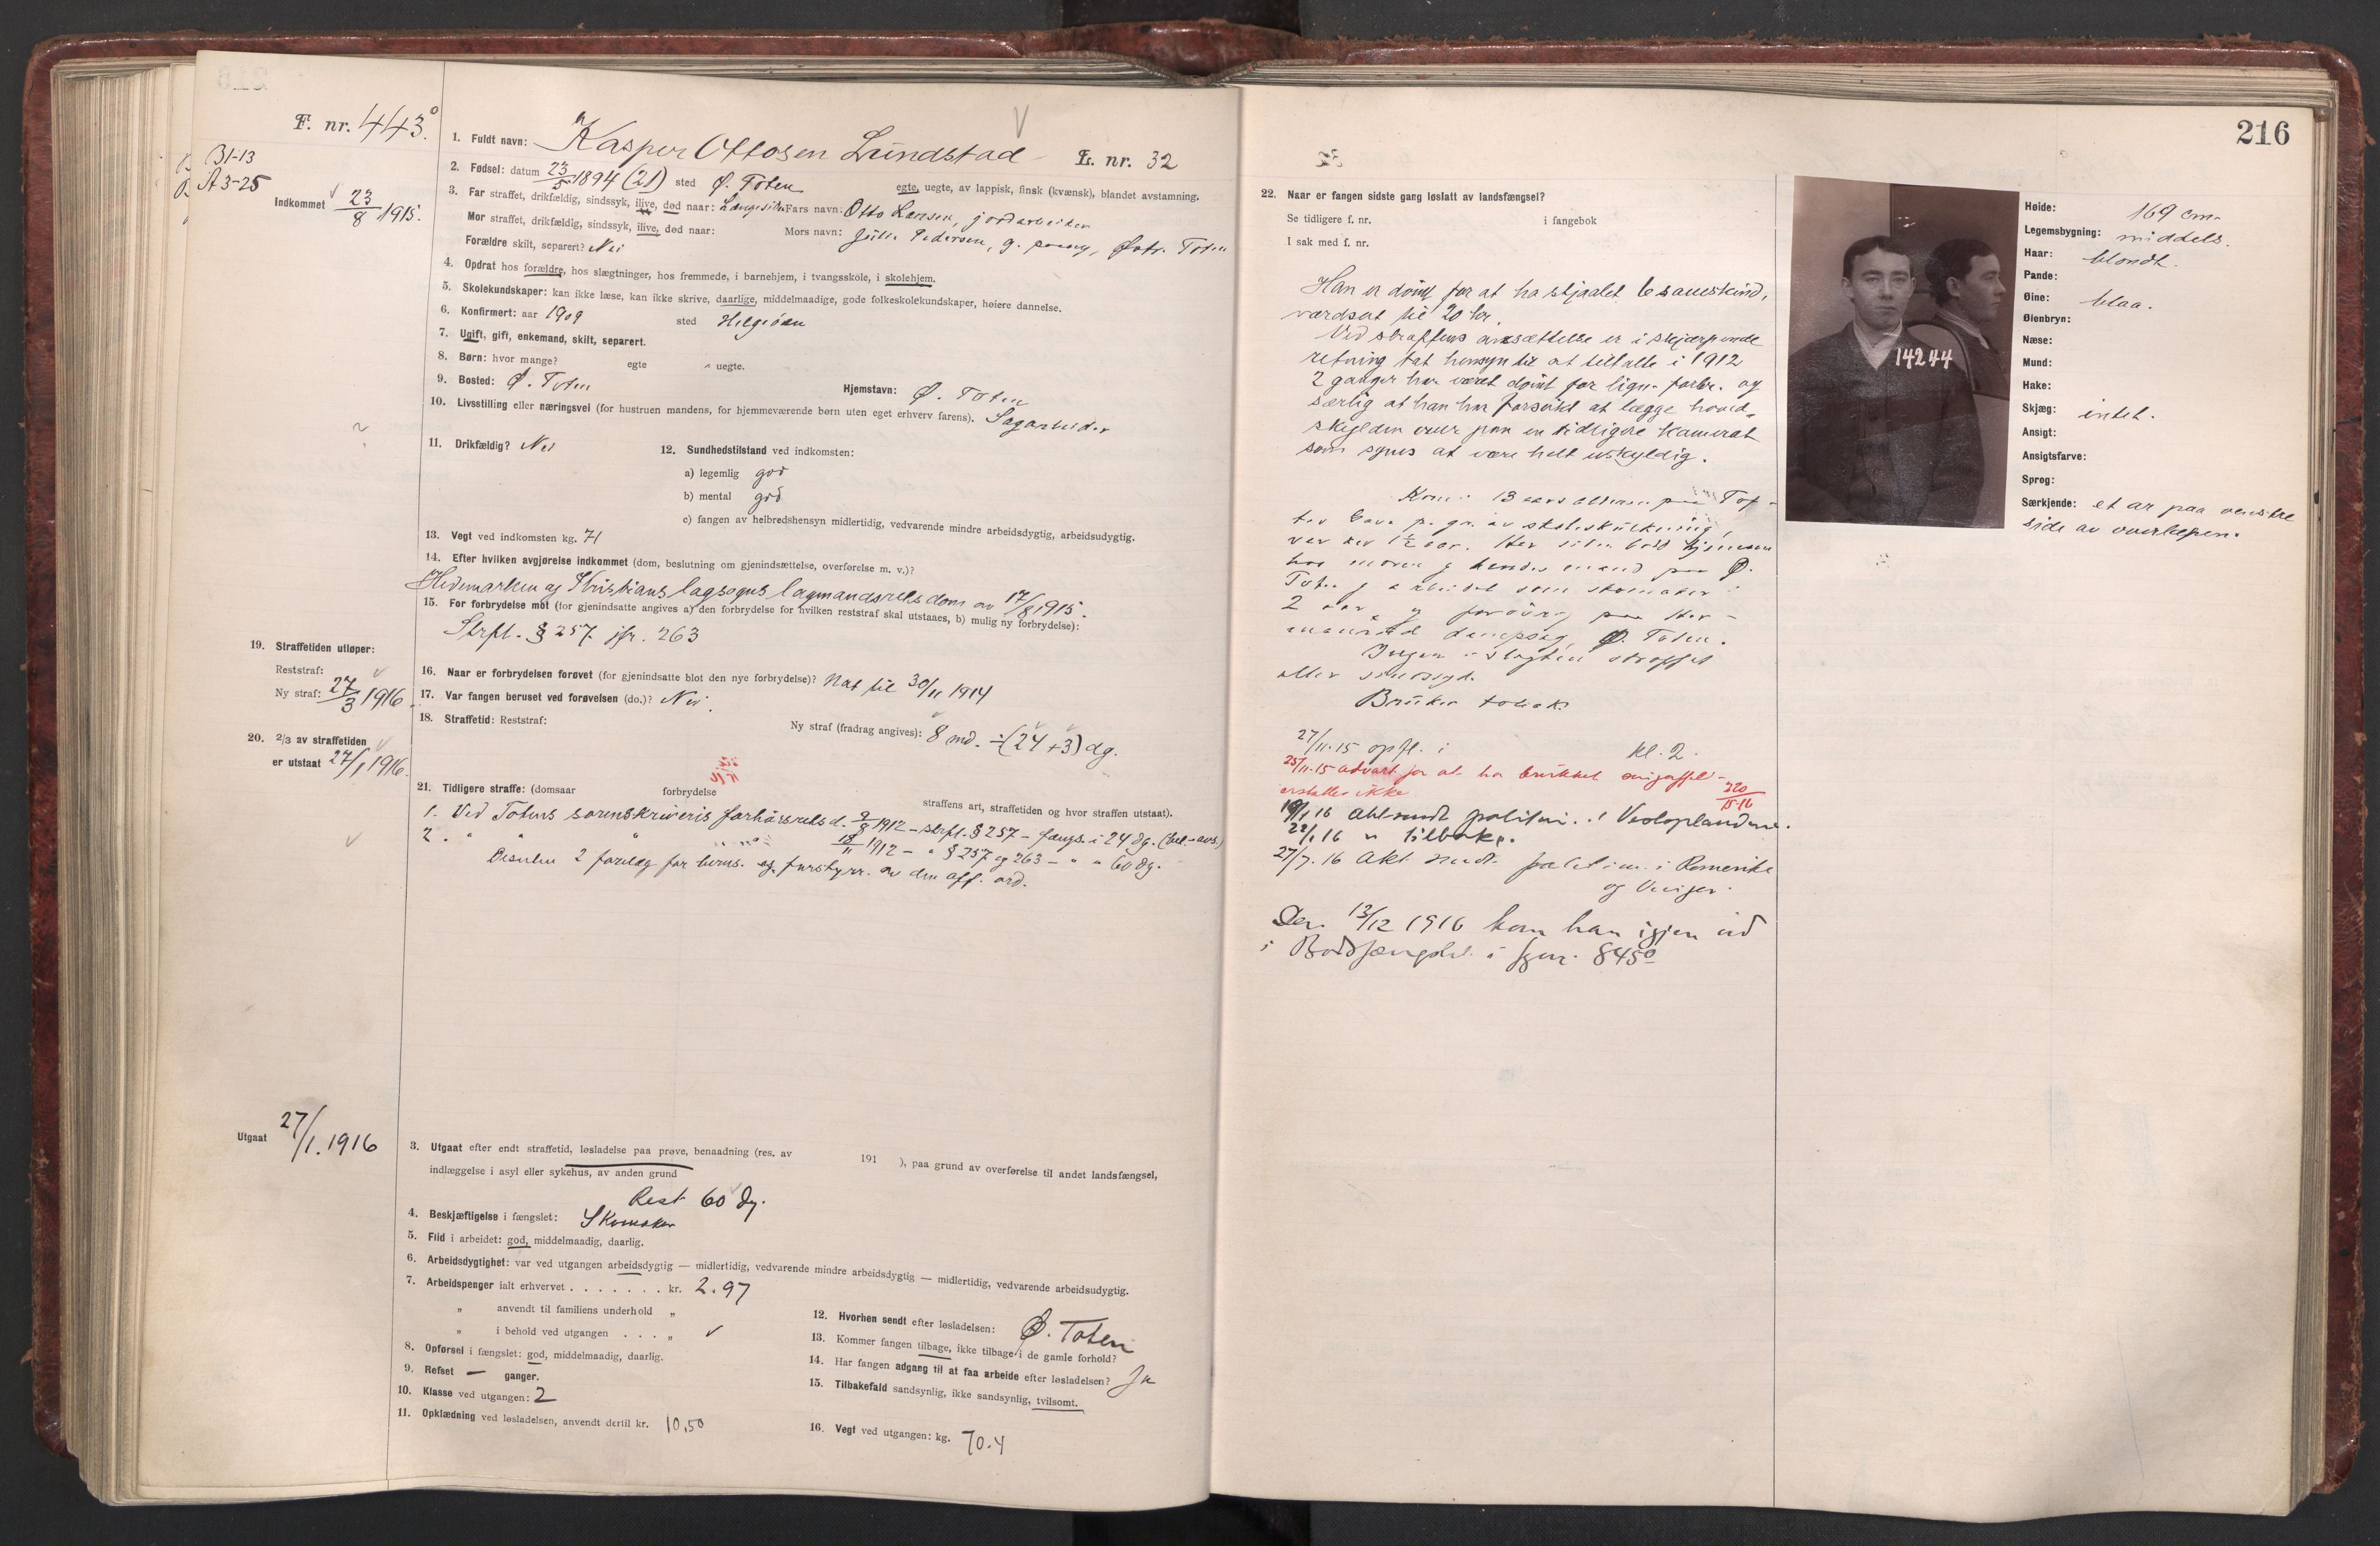 F. nr. 443.
B1-13
A 3-25
Indkommet 23/8 1915.
1. Fuldt navn: Kasper Ottosen Lundstad
L. nr. 32
2. Fødsel: datum 23/5 1894 (21) sted Ø. Toten egte, uegte, av lappisk, finsk (kvænsk), blandet avstamning.
3. Far straffet, drikfældig, sindssyk, ilive, død naar: Længe siden Fars navn: Otto Larsen, jordarbeider
Mor straffet, drikfældig, sindssyk, ilive, død naar: Mors navn: Julie Pedersen, g. Østr. Toten
Forældre skilt, separert? Nei
4. Opdrat hos forældre, hos slægtninger, hos fremmede, i barnehjem, i tvangsskole, i skolehjem.
5. Skolekundskaper: kan ikke læse, kan ikke skrive, daarlige, middelmaadige, gode folkeskolekundskaper, høiere dannelse.
6. Konfirmert: aar 1909 sted Helgiøen
7. Ugift, gift, enkemand, skilt, separert.
8. Børn: hvor mange? egte uegte.
9. Bosted: Ø. Toten Hjemstavn: Ø. Toten
10. Livsstilling eller næringsvei (for hustruen mandens, for hjemmeværende børn uten eget erhverv farens). Sagarbeider
11. Drikfældig? Nei
12. Sundhedstilstand ved indkomsten:
a) legemlig god
b) mental god
c) fangen av helbredshensyn midlertidig, vedvarende mindre arbeidsdygtig, arbeidsudygtig.
13. Vegt ved indkomsten kg. 71
14. Efter hvilken avgjørelse indkommet (dom, beslutning om gjenindsættelse, overførelse m. v.)?
Hedemarken og Kristians lagsogns lagmandsrets dom av 17/8 1915.
15. For forbrydelse mot (for gjenindsatte angives a) den forbrydelse for hvilken reststraf skal utstaaes, b) mulig ny forbrydelse):
Strfl. § 257 jfr. 263
16. Naar er forbrydelsen forøvet (for gjenindsatte blot den nye forbrydelse)? Nat til 30/11 1914
17. Var fangen beruset ved forøvelsen (do.)? Nei.
18. Straffetid: Reststraf: Ny straf (fradrag angives): 8 md. ÷ (24 + 3) dg.
19. Straffetiden utløper:
Reststraf:
Ny straf: 27/3 1916.
20. 2/3 av straffetiden
er utstaat 27/1 1916.
21. Tidligere straffe: (domsaar forbrydelse straffens art, straffetiden og hvor straffen utstaat).
1. Ved Totens sorenskriveris forhørsrets d. 9/8 1912 – strfl. § 257 – fængs. i 24 dg. (bet. - avs.)
2. " " " 18/11 1912 – " § 257 og 263 – " " 60 dg.
Desuten 2 forelæg for berus. og forstyrr. av den off. ord.
Utgaat 27/1. 1916
3. Utgaat efter endt straffetid, løsladelse paa prøve, benaadning (res. av 191 ), paa grund av overførelse til andet landsfængsel,
indlæggelse i asyl eller sykehus, av anden grund
Rest 60 dg.
4. Beskjæftigelse i fængslet: Skomaker
5. Flid i arbeidet: god, middelmaadig, daarlig.
6. Arbeidsdygtighet: var ved utgangen arbeidsdygtig — midlertidig, vedvarende mindre arbeidsdygtig — midlertidig, vedvarende arbeidsudygtig.
7. Arbeidspenger ialt erhvervet . . . . . . . kr. 2.97
" anvendt til familiens underhold "
" i behold ved utgangen . . . "
8. Opførsel i fængslet: god, middelmaadig, daarlig.
9. Refset — ganger.
10. Klasse ved utgangen: 2
11. Opklædning ved løsladelsen, anvendt dertil kr. 10,50
12. Hvorhen sendt efter løsladelsen: Ø. Toten
13. Kommer fangen tilbage, ikke tilbage i de gamle forhold?
14. Har fangen adgang til at faa arbeide efter løsladelsen? Ja
15. Tilbakefald sandsynlig, ikke sandsynlig, tvilsomt.
16. Vegt ved utgangen: kg. 70.4
216
22. Naar er fangen sidste gang løslatt av landsfængsel?
Se tidligere f. nr. i fangebok
I sak med f. nr.
Han er dømt for at ha stjaalet 6 saueskind,
værdsat til 20 kr.
Ved straffens ansættelse er i skjærpende
retning tat hensyn til at tiltalte i 1912
2 ganger har været dømt for lign. forbr. og
særlig at han har forsøkt at lægge hoved-
skylden over paa en tidligere kamerat
som synes at være helt uskyldig.
Kom i 13 aars alderen paa Tof-
tes Gave p. gr. av skoleskulkning,
var der 1½ aar. Har siden hjemme
hos moren og hendes mand paa Ø.
Toten og arbeidet som skomaker i
2 aar og forøvrig paa Her-
manrud dampsag, Ø. Toten.
Ingen i slegten straffet
eller sindssyk.
Bruker tobak.
27/11-15 opfl. i kl. 2.
25/11-15 advart for at ha brukket
erstattes ikke 220/15-16
19/1 16 Akt sendt politim. i Vestoplandene.
22/1 16 " tilbake.
27/7. 16 Akt sendt politim. i Romerike
og Vinger.
Den 13/12 1916 kom han igjen ind
i Bodsfængslet i fgnr. 845
14244
Høide: 169 cm.
Legemsbygning: middels.
Haar: blondt.
Pande:
Øine: blaa.
Øienbryn:
Næse:
Mund:
Hake:
Skjæg: intet.
Ansigt:
Ansigtsfarve:
Sprog:
Særkjende: et ar paa venstre
side av overlepen.